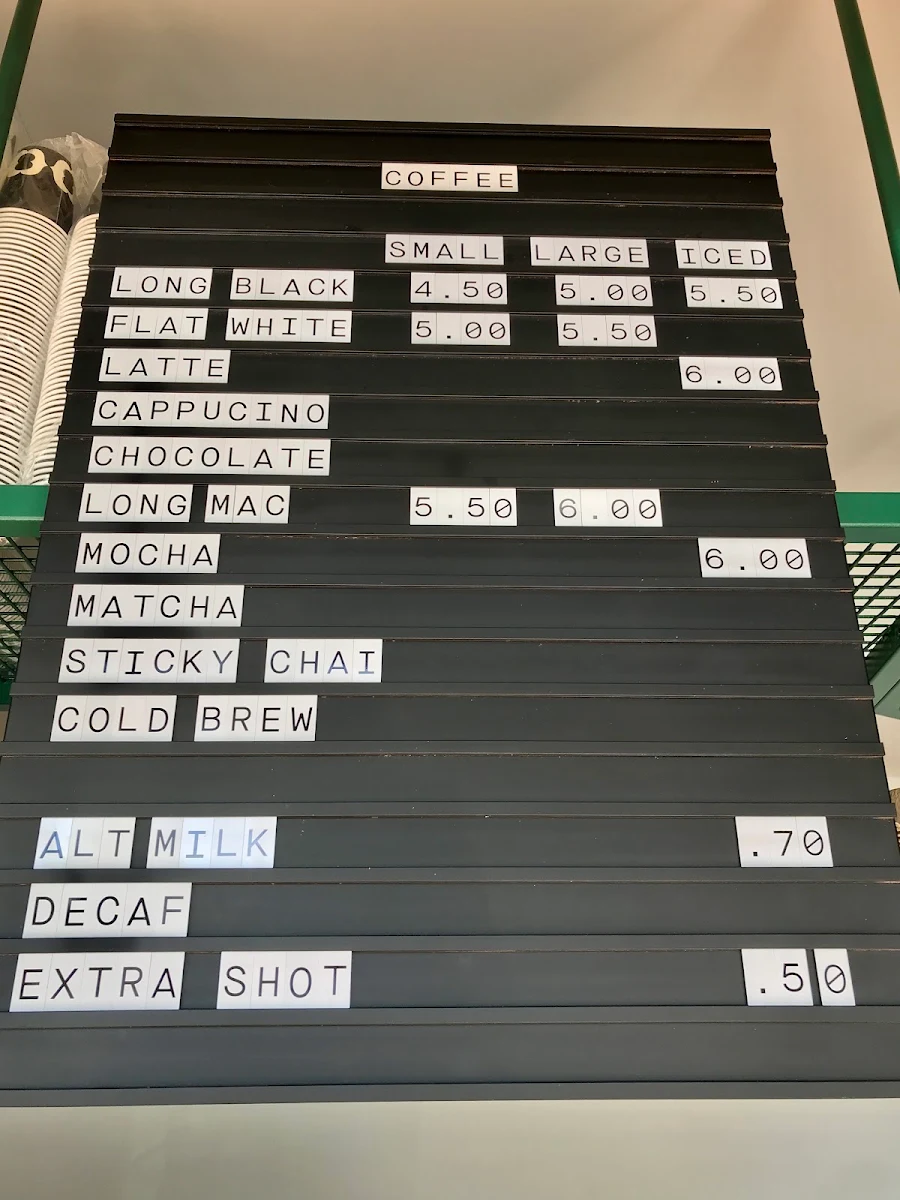 COFFEE
SMALL LARGE ICED
LONG BLACK 4.50 5.00 5.50
FLAT WHITE 5.00 5.50
LATTE 6.00
CAPPUCINO
CHOCOLATE
LONG MAC 5.50 6.00
MOCHA 6.00
MATCHA
STICKY CHAI
COLD BREW
ALT MILK .70
DECAF
EXTRA SHOT .50